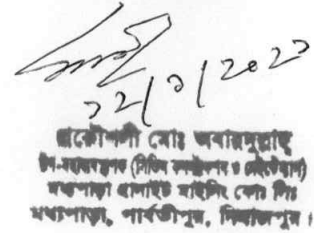 ১২/১/২০২১
প্রকৌশলী মোঃ ওবায়দুল্লাহ
উপ-মহাব্যবস্থাপক (সিভিল কনস্ট্রাকশন ও মেইন্টেন্যান্স)
মধ্যপাড়া গ্রানাইট মাইনিং কোং লিঃ
মধ্যপাড়া, পার্বতীপুর, দিনাজপুর।